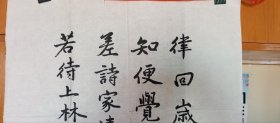 律回歲
知便覺
差詩家清
若待上林